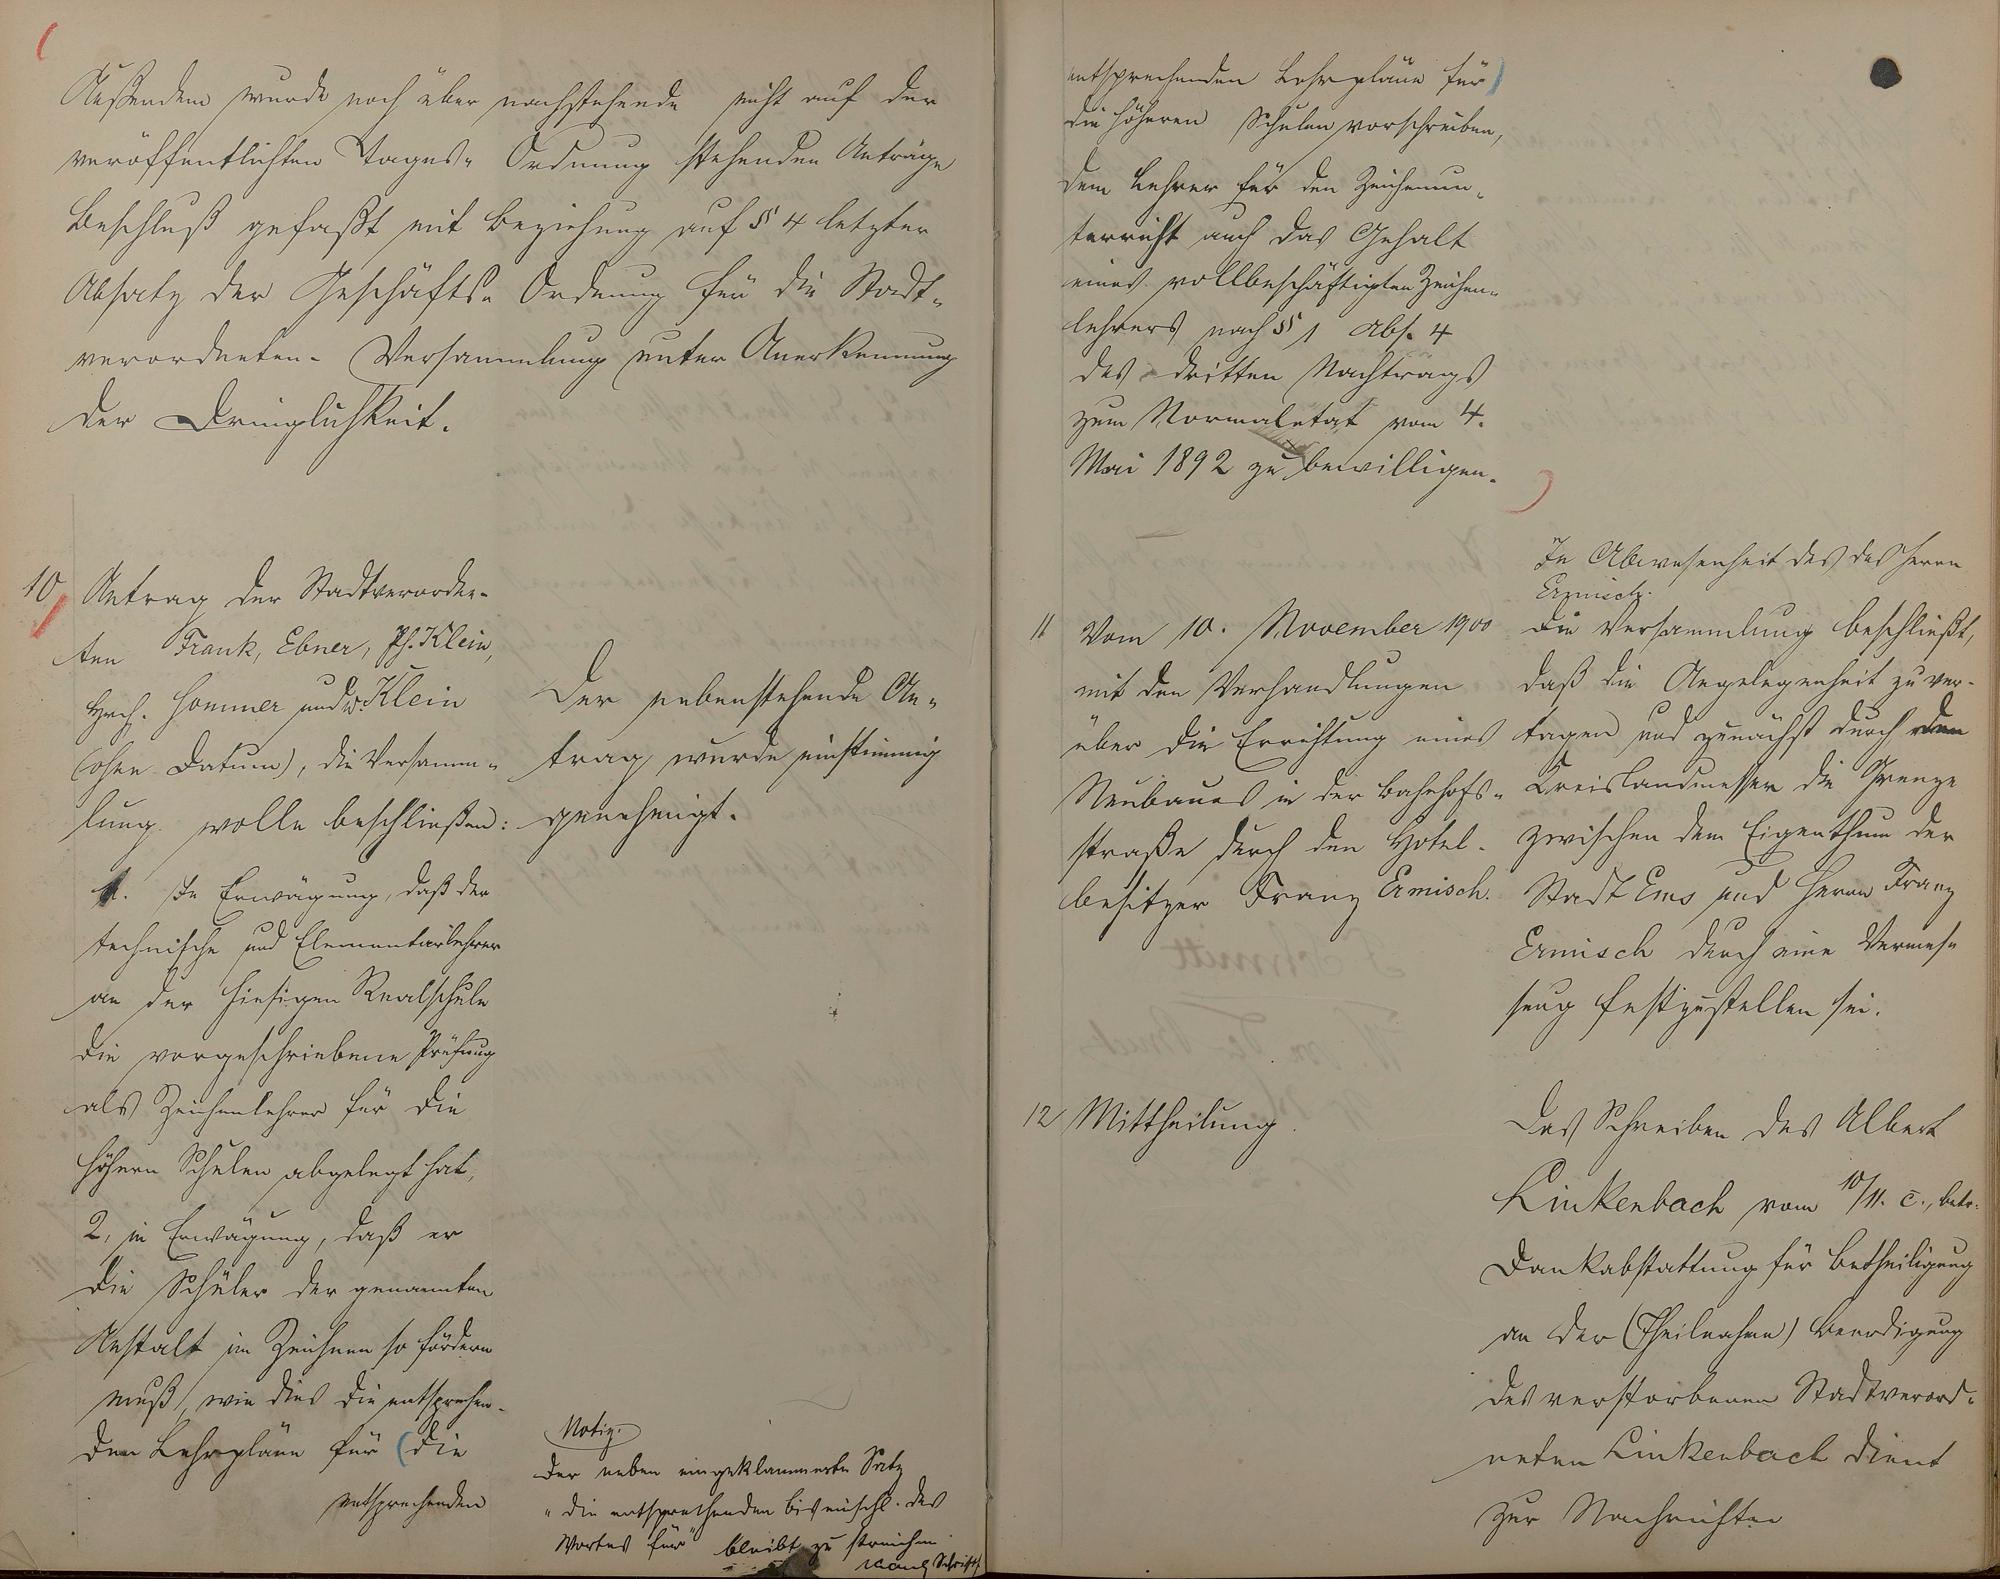 Außerdem wurde noch über nachstehende nicht auf der
veröffentlichten Tages- Ordnung stehenden Anträge
Beschluß gefaßt mit Beziehung auf § 4 letzter
Absatz der Geschäfts- Ordnung für die Stadt-
verordneten- Versammlung unter Anerkennung
der Dringlichkeit.
10, Antrag der Stadtverordne-
ten Frank, Ebner, Ph. Klein,
Hrch. Sommer und W. Klein
(ohne Datum), die Versamm-
lung wolle beschließen:
1. In Erwägung, daß der
technische und Elementarlehrer
an der hiesigen Realschule
die vorgeschriebene Prüfung
als Zeichenlehrer für die
höhern Schulen abgelegt hat,
2, in Erwägung, daß er
die Schüler der genannten
Anstalt im Zeichnen so fördern
muß, wie dies die entsprechen-
den Lehrpläne für (die
entsprechenden
Der nebenstehende An-
trag wurde einstimmig
genehmigt.
Notiz.
Der neben eingeklammerte Satz
"die entsprechenden bis einschl. des
Wortes für" bleibt zu streichen
Schriftf.
entsprechenden Lehrpläne für)
die höheren Schulen vorschreiben,
dem Lehrer für den Zeichenun-
terricht auch das Gehalt
eines vollbeschäftigten Zeichen-
lehrers nach § 1 Abs. 4
des dritten Nachtrags
zum Normaletat vom 4.
Mai 1892 zu bewilligen.
11 Vom 10. November 1900
mit den Verhandlungen
über die Errichtung eines
Neubaues in der Bahnhofs-
straße durch den Hotel-
besitzer Franz Ermisch.
In Abwesenheit des des Herrn
Ermisch.
Die Versammlung beschließt,
daß die Angelegenheit zu ver-
tagen und zunächst durch den
Kreislandmesser die Grenze
zwischen dem Eigenthum der
Stadt Ems und Herrn Franz
Ermisch durch eine Vermes-
sung festzustellen sei.
12 Mittheilung.
Das Schreiben des Albert
Linkenbach vom 10/11. c., betr.
Dankabstattung für Betheiligung
an der (Theilnahme) Beerdigung
des verstorbenen Stadtverord-
neten Linkenbach dient
zur Nachricht